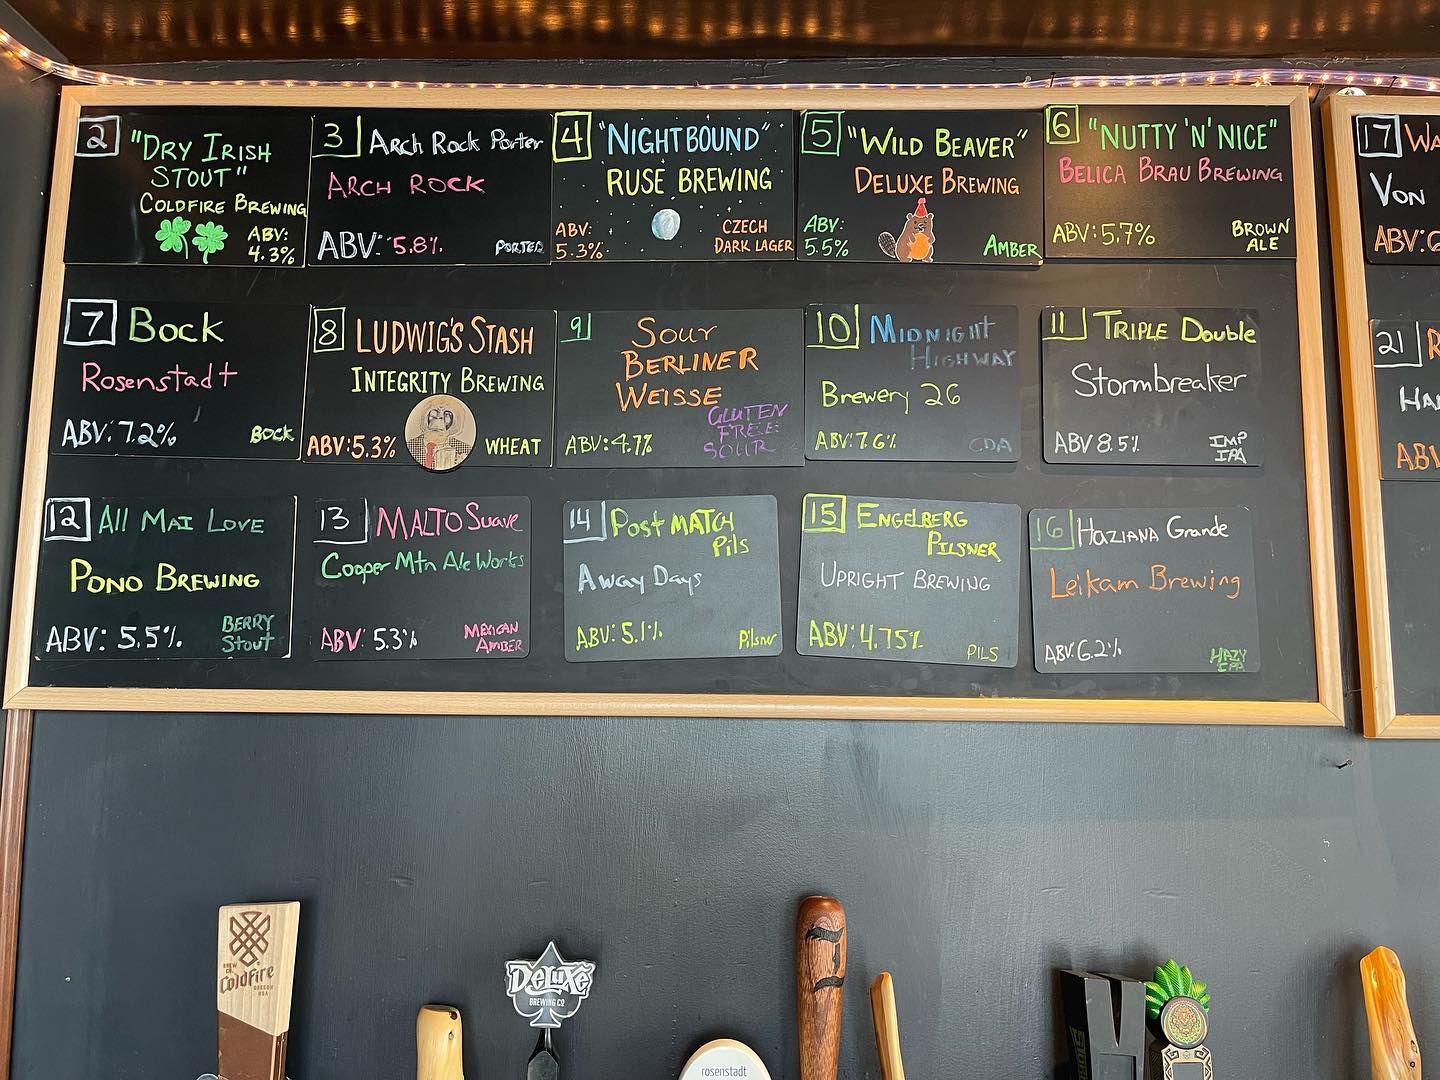 2
"DRY IRISH
STOUT"
COLDFIRE BREWING
ABV:
4.3%
3
Arch Rock Porter
ARCH ROCK
ABV: 5.8%
PORTER
4
"NIGHTBOUND"
RUSE BREWING
ABV:
5.3%
CZECH
DARK LAGER
5
"WILD BEAVER"
DELUXE BREWING
ABV:
5.5%
AMBER
6
"NUTTY 'N' NICE"
BELICA BRAU BREWING
ABV: 5.7%
BROWN
ALE
7
Bock
Rosenstadt
ABV: 7.2%
BOCK
8
LUDWIG'S STASH
INTEGRITY BREWING
ABV: 5.3%
WHEAT
9
Sour
BERLINER
WEISSE
ABV: 4.7%
GLUTEN
FREE
SOUR
10
MIDNIGHT
HIGHWAY
Brewery 26
ABV: 7.6%
CDA
11
TRIPLE Double
Stormbreaker
ABV 8.5%
IMP
IPA
12
All MAI LOVE
PONO BREWING
ABV: 5.5%
BERRY
Stout
13
MALTO Suave
Cooper Mtn Ale Works
ABV: 5.3%
MEXICAN
AMBER
14
Post MATCH
Pils
Away Days
ABV: 5.1%
Pilsner
15
ENGELBERG
PILSNER
UPRIGHT BREWING
ABV: 4.75%
PILS
16
HAZIANA Grande
Leikam Brewing
ABV: 6.2%
HAZY
IPA
17
WA
VON
ABV: 6
21
R
HA
ABV
BREW
CO
COLDFIRE
OREGON
USA
DELUXE
BREWING CO
rosenstadt